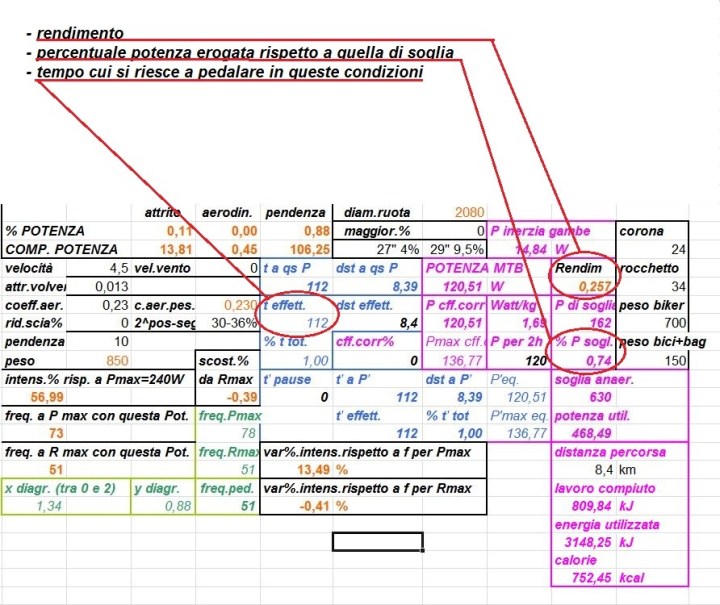 - rendimento
- percentuale potenza erogata rispetto a quella di soglia
- tempo cui si riesce a pedalare in queste condizioni
attrito aerodin. pendenza diam.ruota 2080
% POTENZA 0,11 0,00 0,88 maggior.% 0 P inerzia gambe corona
COMP. POTENZA 13,81 0,45 106,25 27" 4% 29" 9,5% 14,84 W 24
velocità 4,5 vel.vento 0 t a qs P dst a qs P POTENZA MTB Rendim rocchetto
attr.volver 0,013 112 8,39 120,51 W 0,257 34
coeff.aer. 0,23 c.aer.pes. 0,230 t effett. dst effett. P cff.corr Watt/kg P di soglia peso biker
rid.scia% 0 2^pos-seg 30-36% 112 8,4 120,51 1,69 162 700
pendenza 10 % t tot. cff.corr% Pmax cff. P per 2h % P sogl. peso bici+bag
peso 850 scost.% 1,00 0 136,77 120 0,74 150
intens.% risp. a Pmax=240W da Rmax t' pause t' a P' dst a P' P'eq. soglia anaer.
56,99 -0,39 0 112 8,39 120,51 630
freq. a P max con questa Pot. freq.Pmax t' effett. % t' tot P'max eq. potenza util.
73 78 112 1,00 136,77 468,49
freq. a R max con questa Pot. freq.Rmax var%.intens.rispetto a f per Pmax distanza percorsa
51 51 13,49 % 8,4 km
x diagr. (tra 0 e 2) y diagr. freq.ped. var%.intens.rispetto a f per Rmax lavoro compiuto
1,34 0,88 51 -0,41 % 809,84 kJ
energia utilizzata
3148,25 kJ
calorie
752,45 kcal